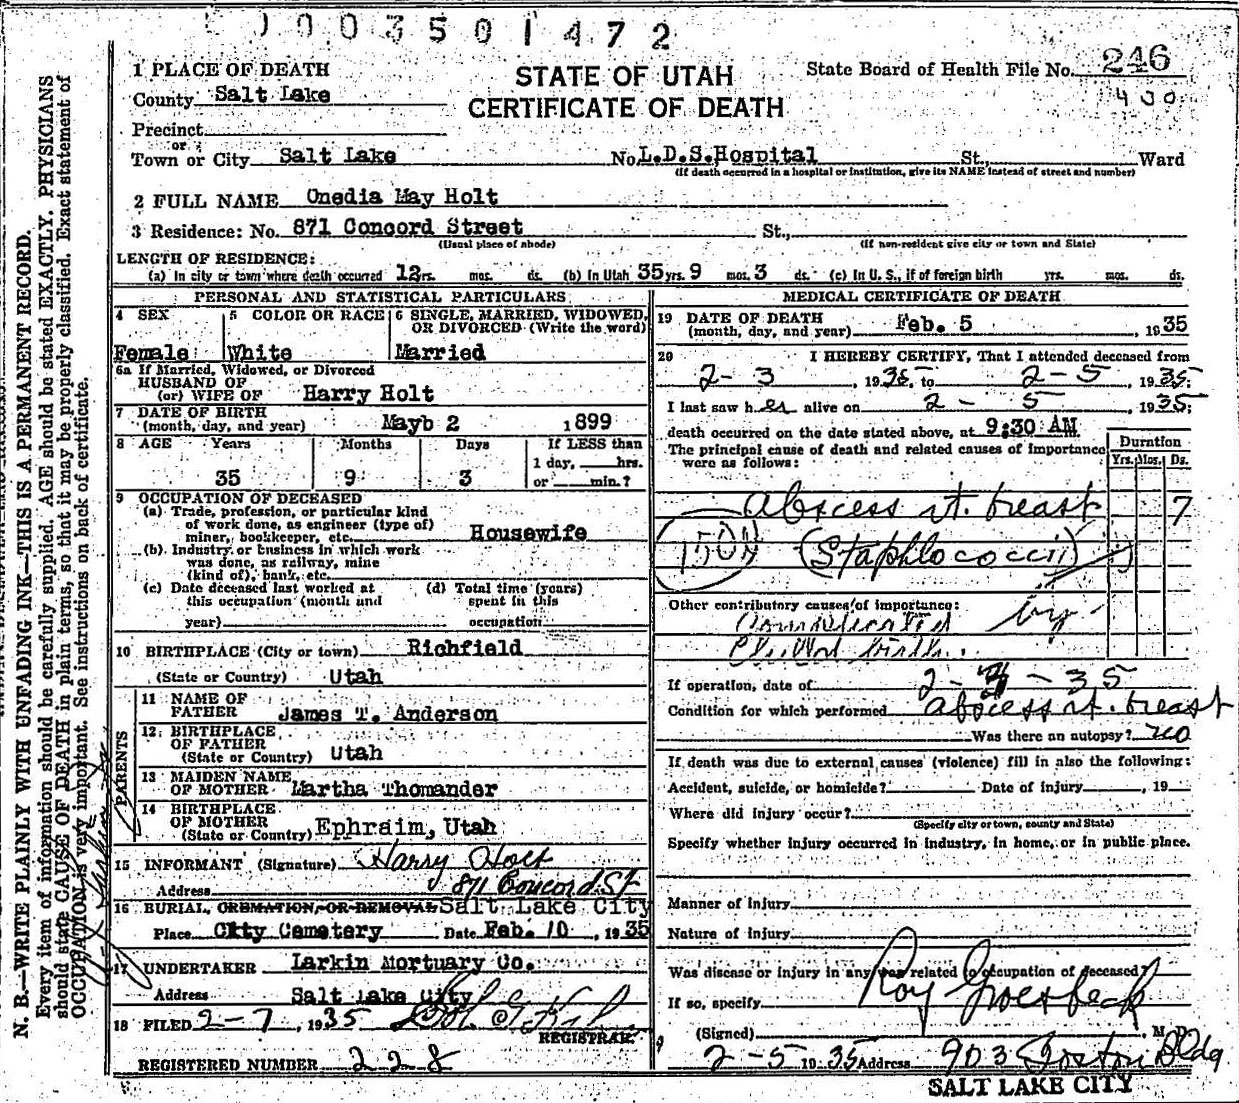 0003501472
1 PLACE OF DEATH
STATE OF UTAH
CERTIFICATE OF DEATH
State Board of Health File No. 246
400
County Salt Lake
Precinct
or
Town or City Salt Lake No. L.D.S.Hospital St., Ward
(If death occurred in a hospital or institution, give its NAME instead of street and number)
2 FULL NAME Onedia May Holt
3 Residence: No. 871 Concord Street St.,
(Usual place of abode) (If non-resident give city or town and State)
LENGTH OF RESIDENCE:
(a) In city or town where death occurred 12rs. mos. ds. (b) In Utah 35 yrs. 9 mos. 3 ds. (c) In U. S., if of foreign birth yrs. mos. ds.
PERSONAL AND STATISTICAL PARTICULARS
4 SEX 5 COLOR OR RACE 6 SINGLE, MARRIED, WIDOWED, OR DIVORCED (Write the word)
Female White Married
6a If Married, Widowed, or Divorced
HUSBAND OF
(or) WIFE OF Harry Holt
7 DATE OF BIRTH
(month, day, and year) Mayb 2 1899
8 AGE Years Months Days If LESS than
1 day, hrs.
35 9 3 or min.?
9 OCCUPATION OF DECEASED
(a) Trade, profession, or particular kind
of work done, as engineer (type of)
miner, bookkeeper, etc. Housewife
(b) Industry or business in which work
was done, as railway, mine
(kind of), bank, etc.
(c) Date deceased last worked at
this occupation (month and
year)
(d) Total time (years)
spent in this
occupation
10 BIRTHPLACE (City or town) Richfield
(State or Country) Utah
PARENTS
11 NAME OF
FATHER James T. Anderson
12 BIRTHPLACE
OF FATHER
(State or Country) Utah
13 MAIDEN NAME
OF MOTHER Martha Thomander
14 BIRTHPLACE
OF MOTHER
(State or Country) Ephraim, Utah
15 INFORMANT (Signature) Harry Holt
Address 871 Concord St
16 BURIAL, CREMATION, OR REMOVAL Salt Lake City
Place City Cemetery Date Feb. 10, 1935
17 UNDERTAKER Larkin Mortuary Co.
Address Salt Lake City
18 FILED 2-7, 1935
REGISTRAR
REGISTERED NUMBER 228
MEDICAL CERTIFICATE OF DEATH
19 DATE OF DEATH
(month, day, and year) Feb. 5, 1935
20 I HEREBY CERTIFY, That I attended deceased from
2-3, 1935, to 2-5, 1935;
I last saw her alive on 2-5, 1935;
death occurred on the date stated above, at 9:30 AM
The principal cause of death and related causes of importance
were as follows:
Duration
Yrs. Mos. Ds.
abscess rt. breast 7
(Staphlococcii)
Other contributory causes of importance:
Complicated by
Child birth.
If operation, date of 2-3-35
Condition for which performed abscess rt. breast
Was there an autopsy? no
If death was due to external causes (violence) fill in also the following:
Accident, suicide, or homicide? Date of injury, 19
Where did injury occur?
(Specify city or town, county and State)
Specify whether injury occurred in industry, in home, or in public place.
Manner of injury
Nature of injury
Was disease or injury in any way related to occupation of deceased?
If so, specify
(Signed) Roy Groesbeck M. D.
2-5 1935 Address 903 Boston Bldg
SALT LAKE CITY
N. B.—WRITE PLAINLY WITH UNFADING INK—THIS IS A PERMANENT RECORD.
Every item of information should be carefully supplied. AGE should be stated EXACTLY. PHYSICIANS
should state CAUSE OF DEATH in plain terms, so that it may be properly classified. Exact statement of
OCCUPATION is very important. See instructions on back of certificate.